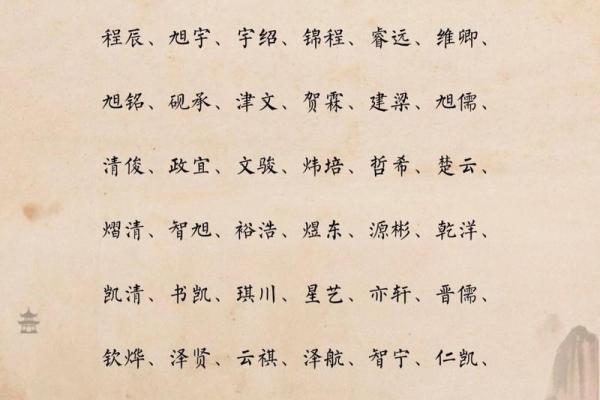 程辰、旭宇、宇绍、锦程、睿远、维卿、
旭铭、砚承、津文、贺霖、建梁、旭儒、
清俊、政宜、文骏、炜培、哲希、楚云、
熠清、智旭、裕浩、煜东、源彬、乾洋、
凯清、书凯、琪川、星艺、亦轩、晋儒、
钦烨、泽贤、云祺、泽航、智宁、仁凯、